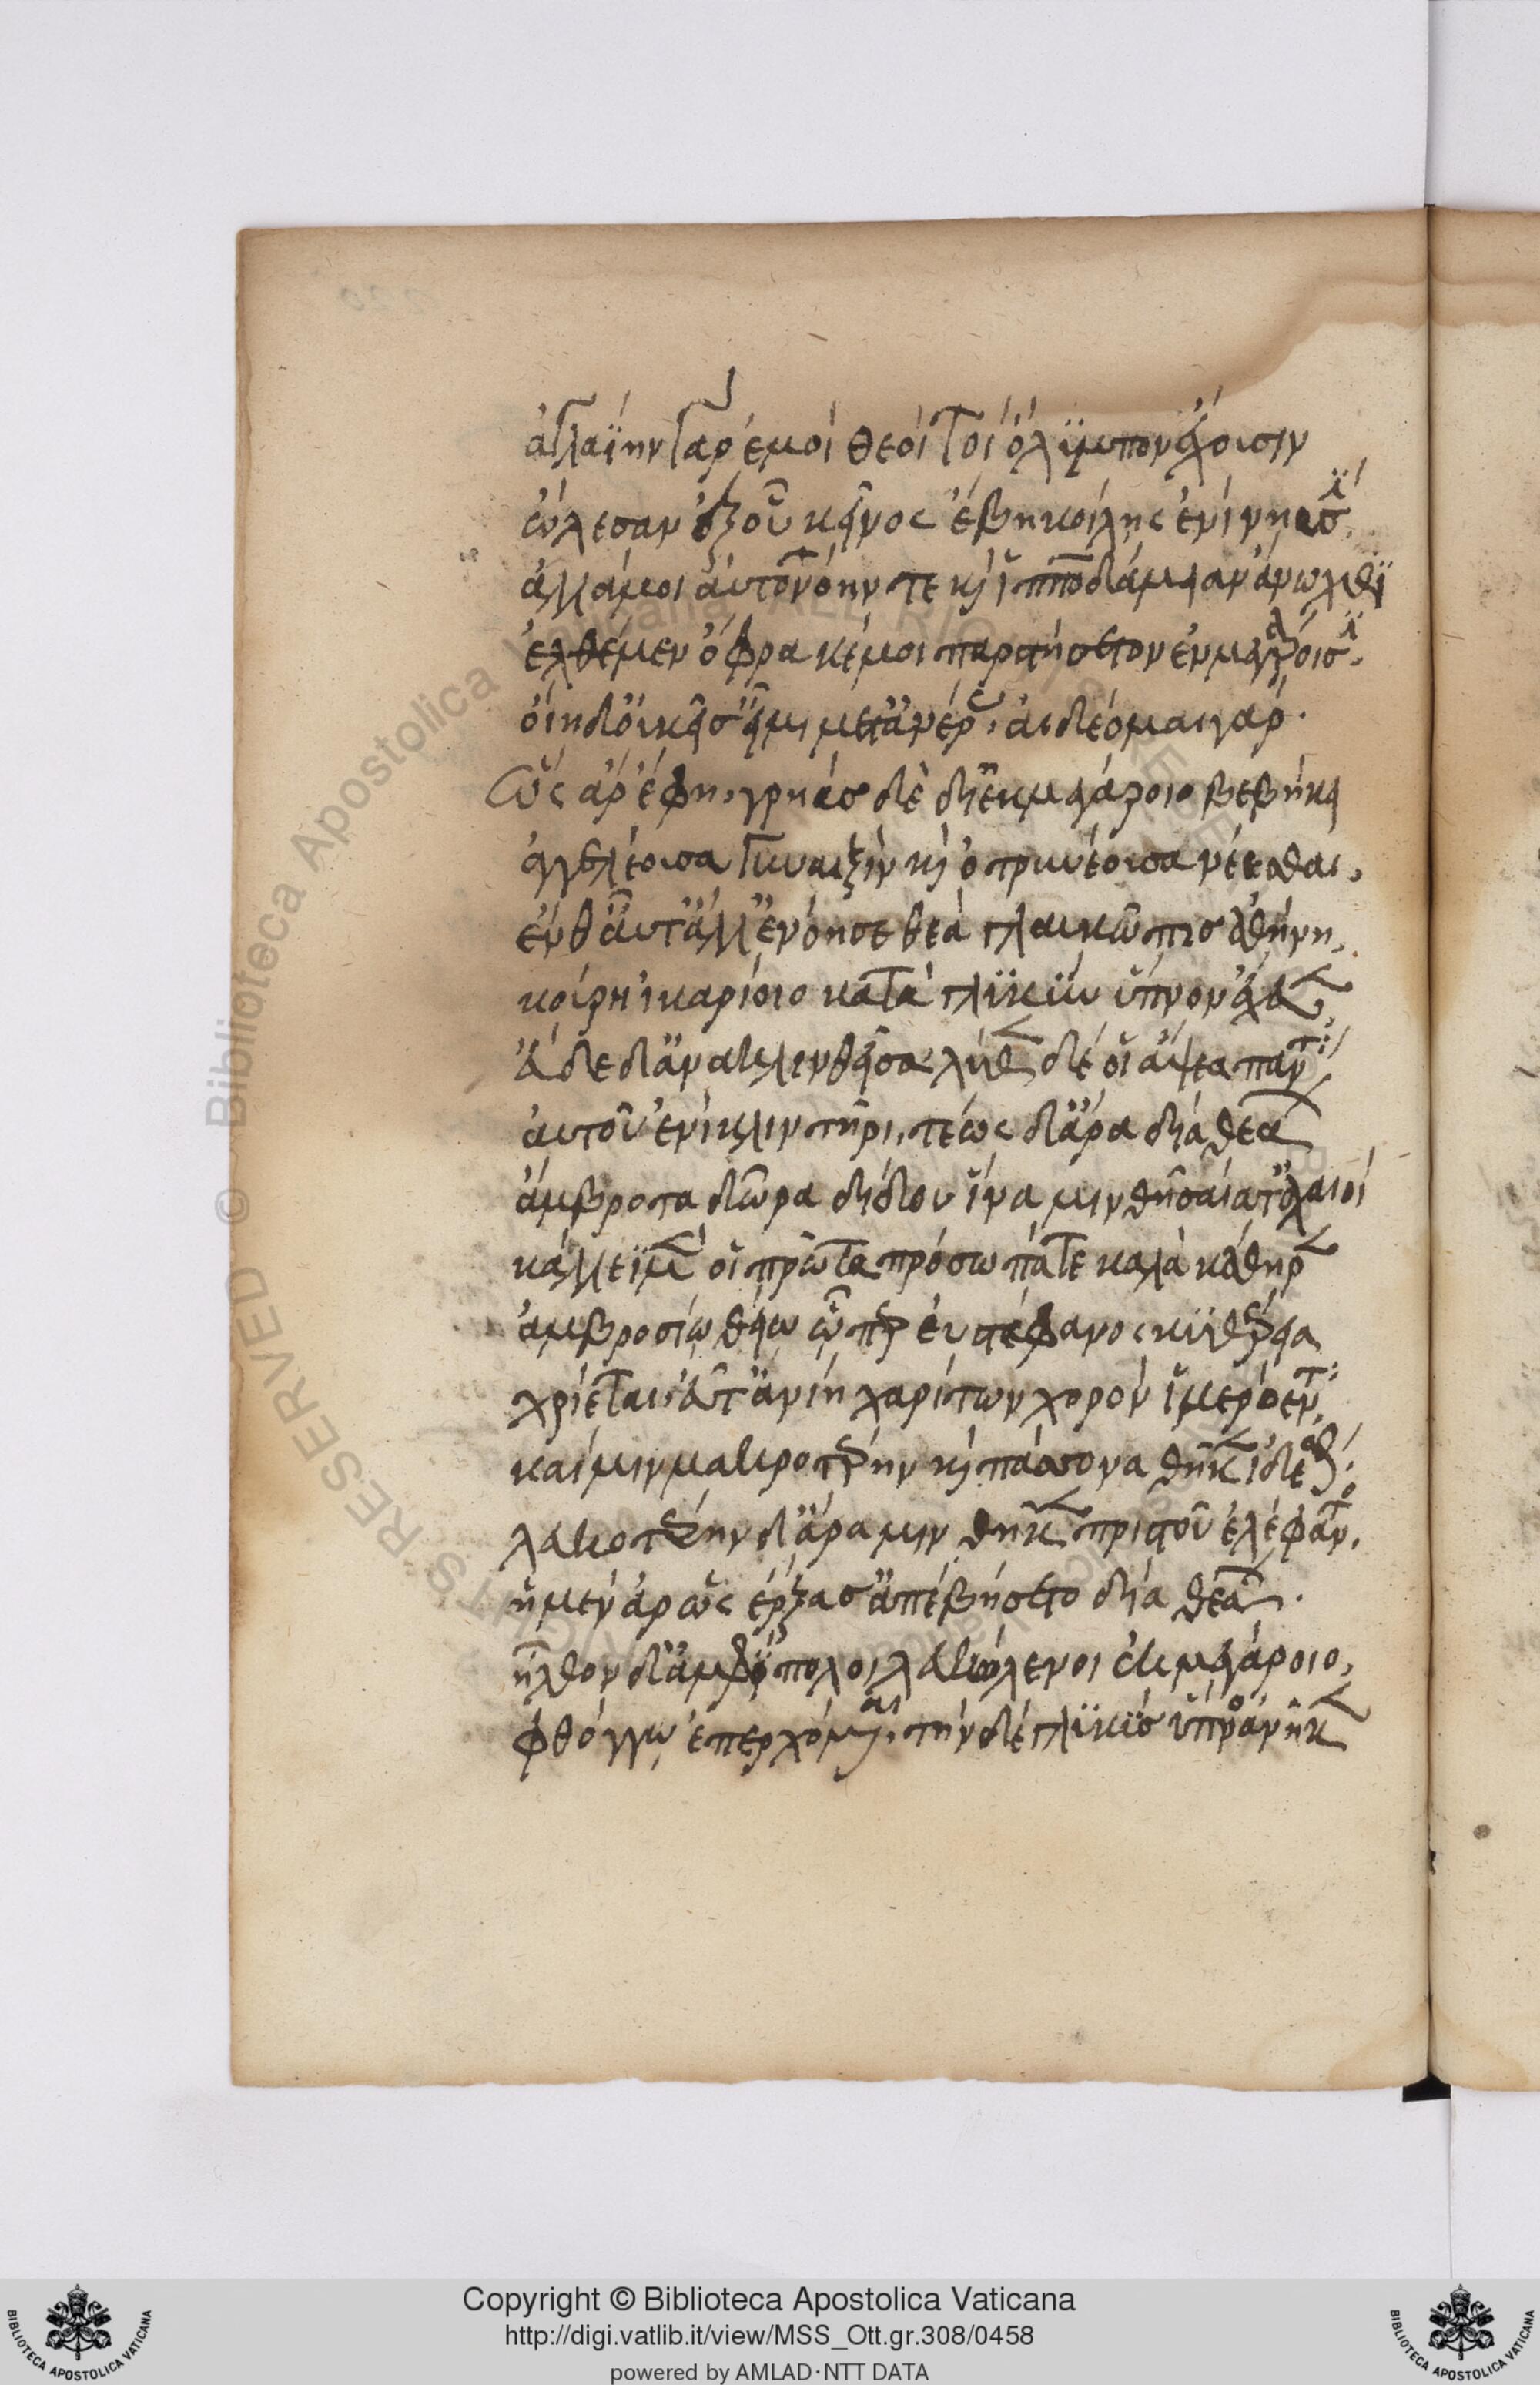 ἀγλαΐην γὰρ ἐμοὶ θεοὶ τοὶ ὄλϋμπον ἔχουσιν
ὤλεσαν ἐξ οὗ κεῖνος ἔβη κοίλῃς ἐνὶ νηυσὶ.
ἀλλά μοι αὐτονόην τε καὶ ἱπποδάμειαν ἄνωχθι
ἐλθέμεν ὄφρα κέ μοι παρστήετον ἐν μεγάροισι.
οἴη δ' οὐκ εἴσειμι μετ' ἀνέρας, αἰδέομαι γάρ.
Ὣς ἄρ' ἔφη, γρηῢς δὲ διὲκ μεγάροιο βεβήκει
ἀγγελέουσα γυναιξὶν καὶ ὀτρυνέουσα νέεσθαι,
ἔνθ' αὖτ' ἄλλ' ἐνόησε θεὰ γλαυκῶπις ἀθήνη,
κούρῃ ἰκαρίοιο κατὰ γλϋκὺν ὕπνον ἔχευεν,
εὗδε δ' ἀνακλινθεῖσα, λύθεν δέ οἱ ἅψεα πάντα.
αὐτοῦ ἐνὶ κλιντῆρι, τέως δ' ἄρα δῖα θεάων
ἄμβροτα δῶρα δίδου ἵνα μιν θησαίατ' ἀχαιοί
κάλλεϊ μέν οἱ πρῶτα πρόσωπά τε καλὰ κάθηρεν
ἀμβροσίῳ θείῳ ᾧ περ ἐϋστέφανος κϋθέρεια
χρίεται, εὖτ' ἂν ἴῃ χαρίτων χορὸν ἱμερόεντα,
καί μιν μακροτέρην καὶ πάσσονα θῆκεν ἰδέσθαι.
λευκοτέρην δ' ἄρα μιν θῆκε πριστοῦ ἐλέφαντος,
ἡ μὲν ἄρ' ὣς ἔρξασ' ἀπεβήσετο δῖα θεάων.
ἦλθον δ' ἀμφίπολοι λευκώλενοι ἐκ μεγάροιο,
φθόγγῳ ἐπερχόμεναι, τὴν δὲ γλϋκϋς ὕπνος ἀνῆκε
Copyright © Biblioteca Apostolica Vaticana
http://digi.vatlib.it/view/MSS_Ott.gr.308/0458
powered by AMLAD·NTT DATA